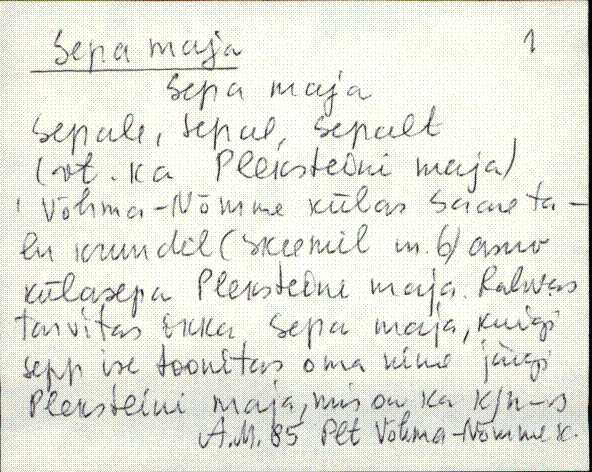 Sepa maja 1
Sepa maja
Sepale, Sepal, Sepalt
(vt. ka Pleksteini maja)
Võhma-Nõmme külas Saareta-
lu krundil (skeemil m. 6) asuv
külasepa Pleksteini maja. Rahvas
tarvitas ikka Sepa maja, kuigi
sepp ise toonitas oma nime järgi
Pleksteini maja, mis on ka k/n-s
A.M. 85 Plt Võhma-Nõmme k.